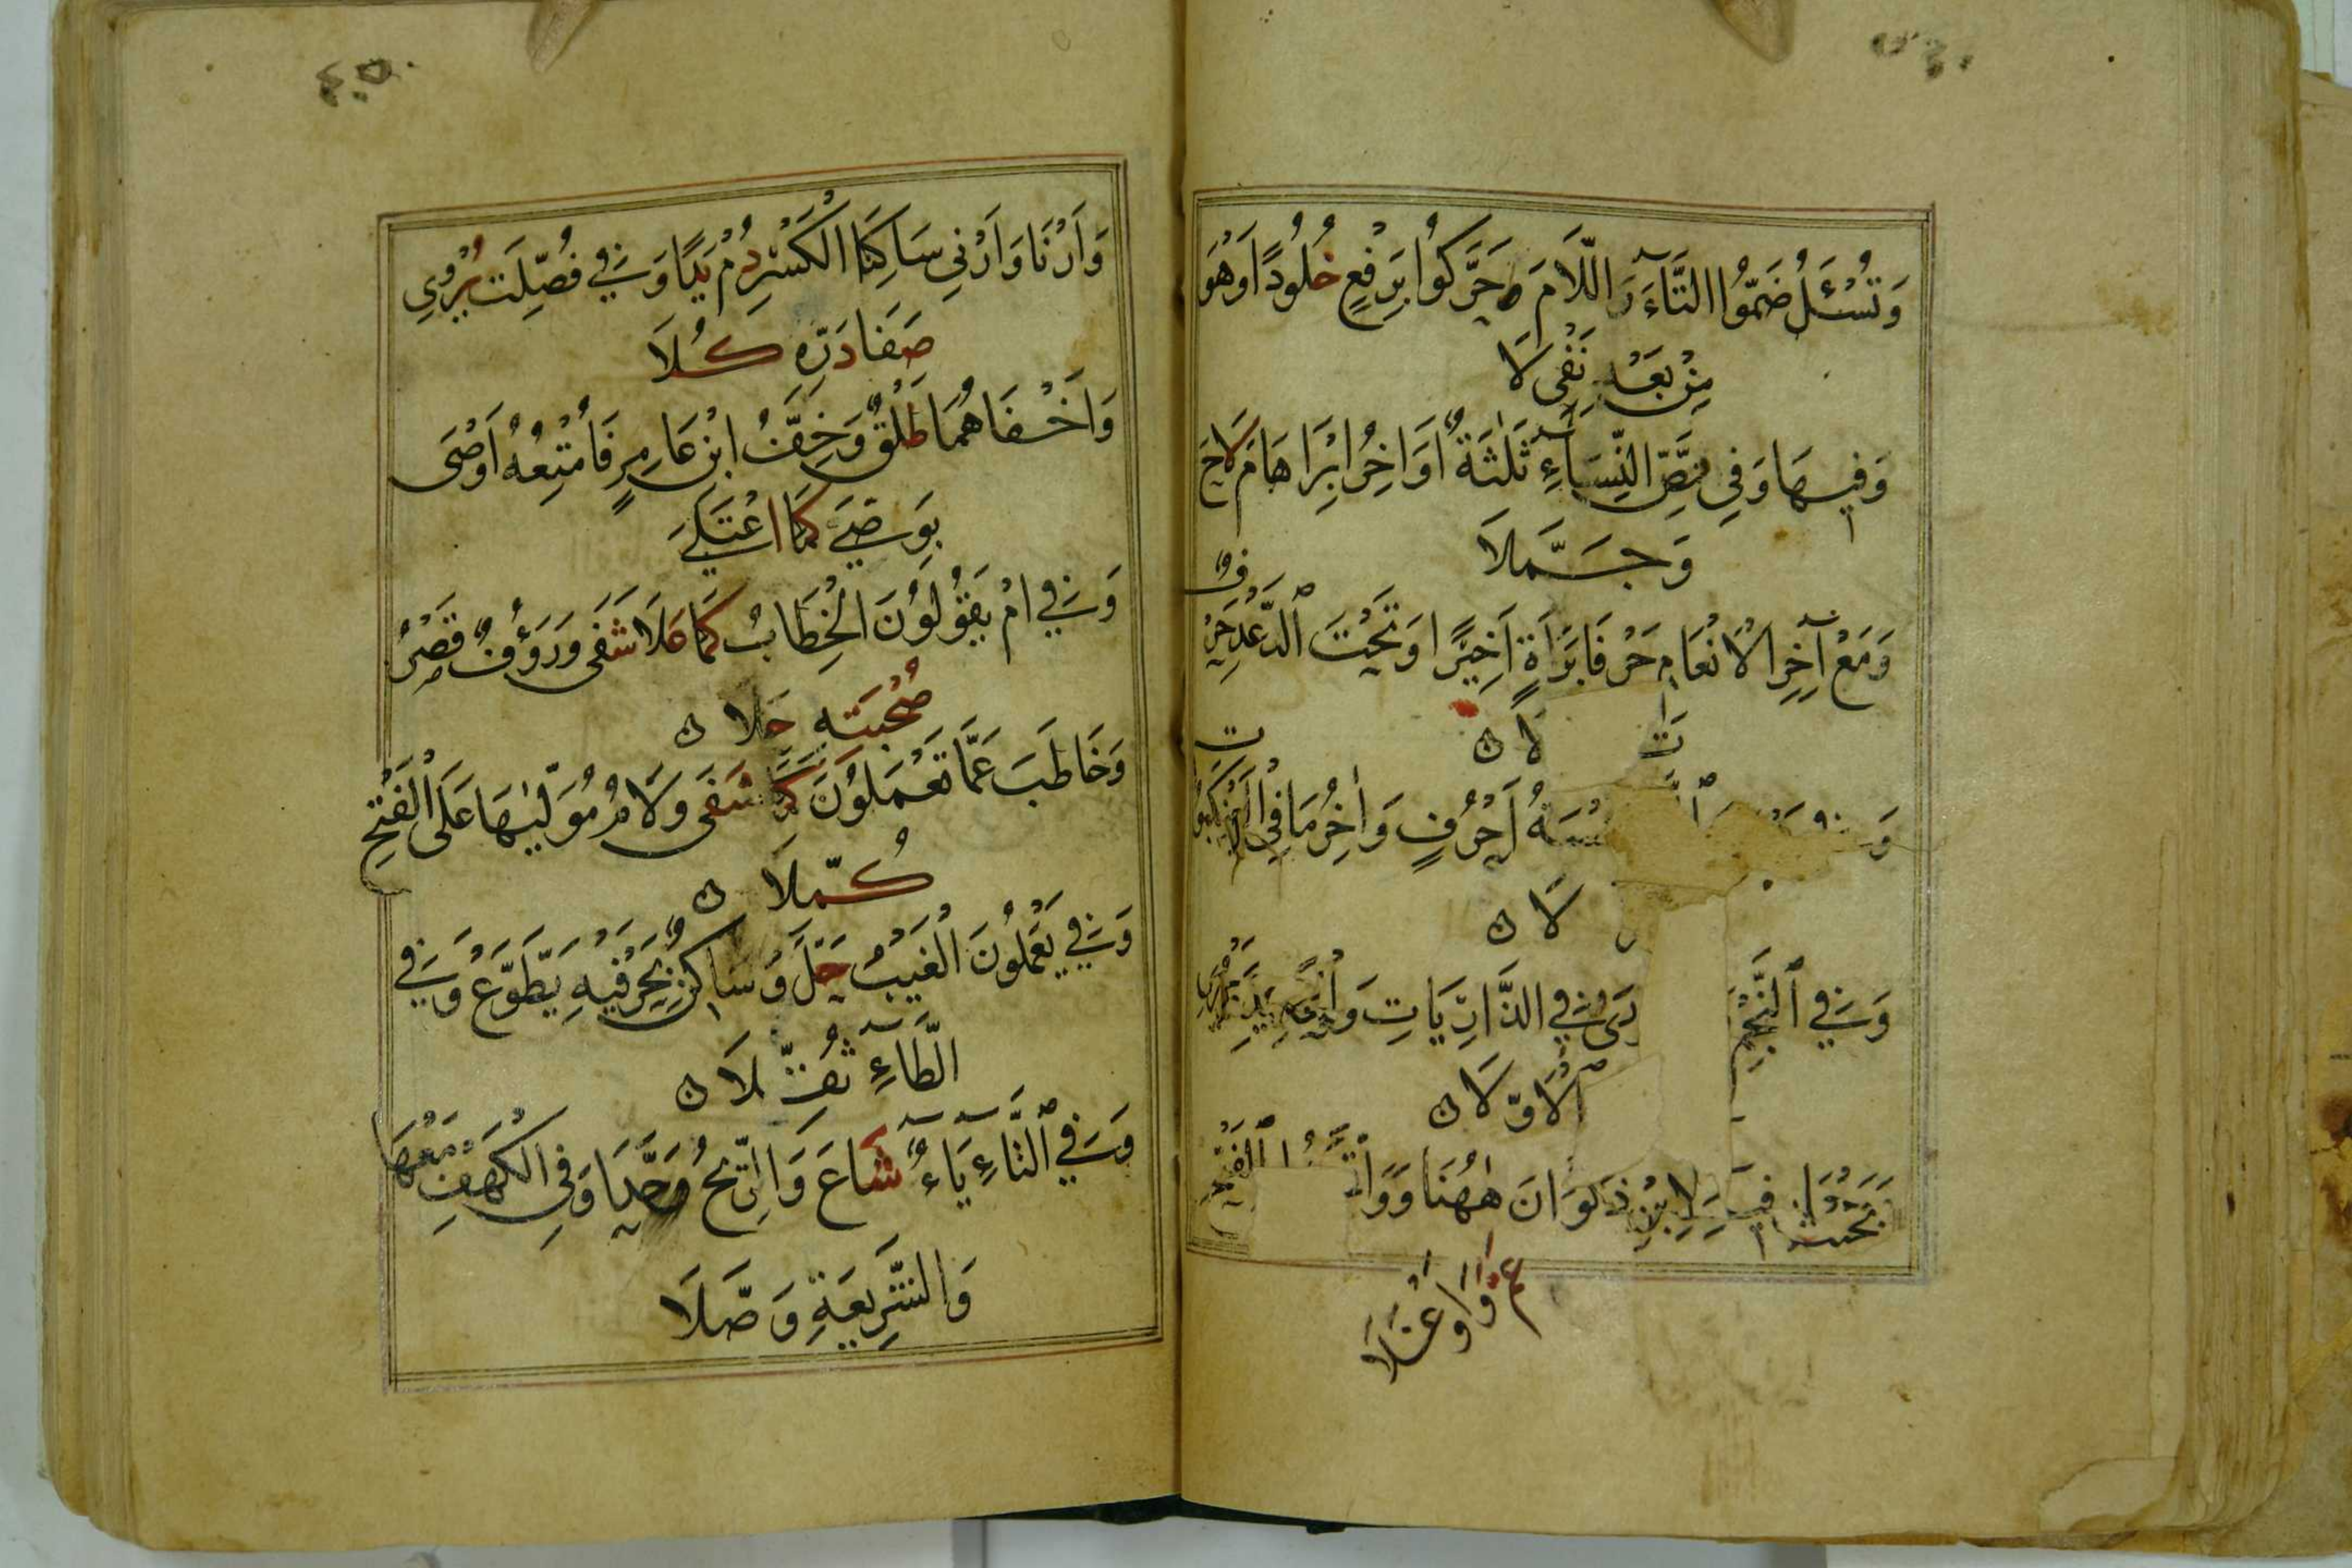 وَتُسْئَلُ ضَمُّوا التَّآءَ وَ اللَّامَ حَرَّكُوا بِرَفْعٍ خُلُودًا وَهُوَ
مِنْ بَعْدِ نَفْىِ لَا
وَفِيهَا وَفِي نَصِّ النِّسَآءِ ثَلٰثَةٌ اَوَاخِرُ اِبْرَاهَامَ لَاحَ
وَجَمَّلَا
وَمَعْ آخِرِ الْاَنْعَامِ حَرْفَا بَرَاَةٍ اَخِيرًا وَتَحْتَ الرَّعْدِ حَرْفٌ
لَا ن
وَ خَمْسَةُ اَحْرُفٍ وَاٰخِرُ مَا فِي الْعَنْكَبُوت
لَا ن
وَفِي النَّجْمِ وَفِي الذَّارِيَاتِ وَالْحَدِيدِ
الْاَوَّلَا ن
وَوَجْهَانِ فِيهِ لِابْنِ ذَكْوَانَ هٰهُنَا وَوَاتَّخِذُوا الْفَتْحِ
عَمَّ وَاَوْغَلَا
وَاَرْنَا وَاَرْنِي سَاكِنَا الْكَسْرِ دُمْ يَدًا وَفِي فُصِّلَتْ يُرْوِي
صَفَا دَرِّهِ كُلَا
وَاَخْفَاهُمَا طَلْقٌ وَخِفُّ ابْنِ عَامِرٍ فَاُمْتِعُهُ اَوْصَى
بِوَصَّى كَمَا اعْتَلَى
وَفِي اَمْ يَقُولُونَ الْخِطَابُ كَمَا عَلَا شَفَى وَرَؤُفٌ قَصْرُ
صُحْبَتِهِ حَلَا ن
وَخَاطَبَ عَمَّا تَعْمَلُونَ كَمَا شَفَى وَلَامُ مُوَلِّيهَا عَلَى الْفَتْحِ
كُمِّلَا ن
وَفِي يَعْمَلُونَ الْغَيْبُ حَلَّ وَسَاكِنٌ بِحَرْفَيْهِ يَطَّوَّعْ وَفِي
الطَّاءِ ثُقِّلَا ن
وَفِي التَّاءِ يَاءٌ شَاعَ وَالرِّيحُ وَحَّدَا وَفِي الْكَهْفِ مَعْهَا
وَالشَّرِيعَةِ وَصَّلَا